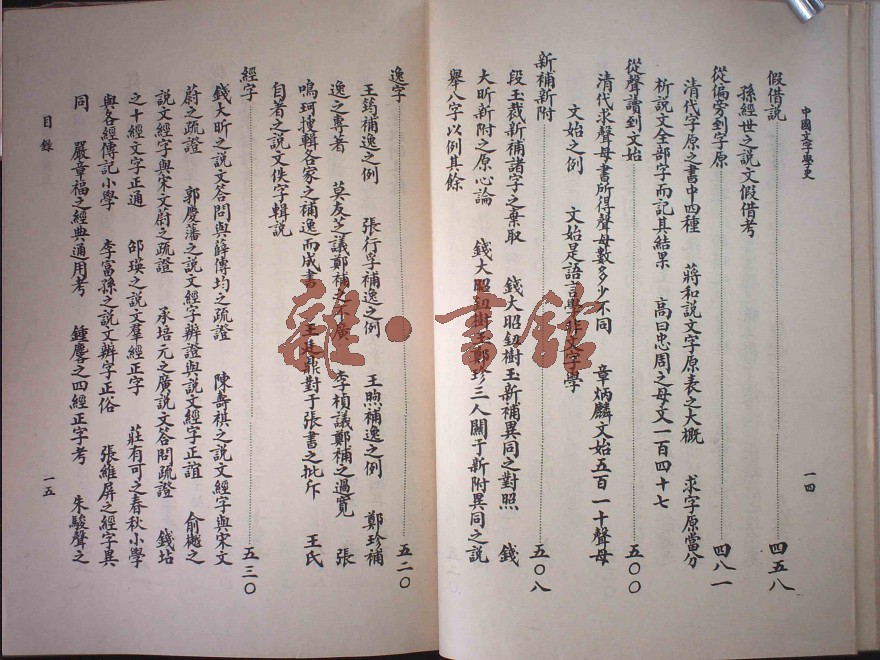 中國文字學史
一四
假借說……四五八
孫經世之說文假借考
從偏旁到字原……四八一
清代字原之書中四種 蔣和說文字原表之大概 求字原當分
析說文全部字而記其結果 高曰忠周之母文一百四十七
從聲讀到文始……五〇〇
清代求聲母書所得聲母數多少不同 章炳麟文始五百一十聲母
文始之例 文始是語言學非文字學
新補新附……五〇八
段玉裁新補諸字之棄取 錢大昭鈕樹玉新補異同之對照 錢
大昕新附之原心論 錢大昭鈕樹玉鄭珍三人關于新附異同之說
舉八字以例其餘
逸字……五二〇
王筠補逸之例 張行孚補逸之例 王煦補逸之例 鄭珍補
逸之專著 莫友芝議鄭補之不廣 李楨議鄭補之過寬 張
鳴珂搜輯各家之補逸而成書 王廷鼎對于張書之批斥 王氏
自著之說文佚字輯說
經字……五三〇
錢大昕之說文答問與薛傳均之疏證 陳壽祺之說文經字與宋文
蔚之疏證 郭慶藩之說文經字辨證與說文經字正誼 俞樾之
說文經字與宋文蔚之疏證 承培元之廣說文答問疏證 錢坫
之十經文字正通 邵瑛之說文羣經正字 莊有可之春秋小學
與各經傳記小學 李富孫之說文辨字正俗 張維屏之經字異
同 嚴章福之經典通用考 鍾麐之四經正字考 朱駿聲之
目錄
一五
雜·書館